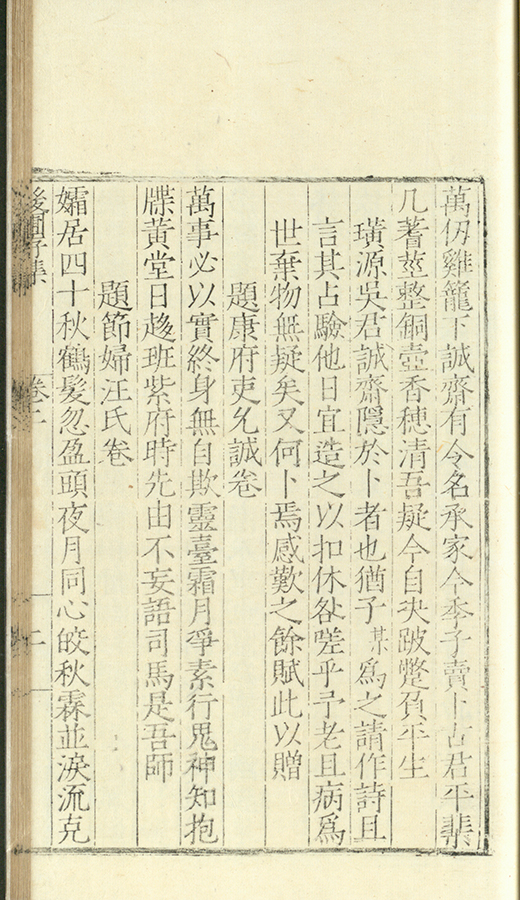 萬仞雞籠下誠齋有令名承家今季子賣卜古君平棐
几蓍莖整銅壺香穗清吾疑今自決跛躄負平生
璜源吳君誠齋隱於卜者也猶子某爲之請作詩且
言其占驗他日宜造之以扣休咎嗟乎予老且病爲
世棄物無疑矣又何卜焉感歎之餘賦此以贈
題康府吏允誠卷
萬事必以實終身無自欺靈臺霜月爭素行鬼神知抱
牒黃堂日趍班紫府時先由不妄語司馬是吾師
題節婦汪氏卷
孀居四十秋鶴髮忽盈頭夜月同心皎秋霖並淚流克
後圃子集 卷二 二